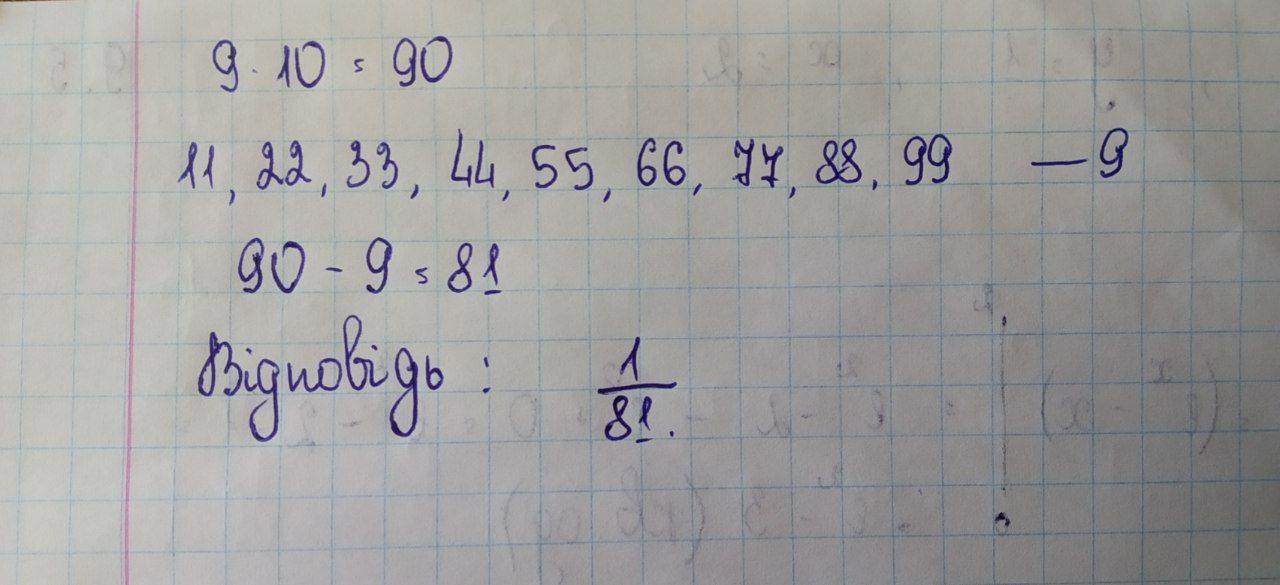 9 · 10 = 90
11, 22, 33, 44, 55, 66, 77, 88, 99 — 9
90 - 9 = 81
Відповідь : 1/81.